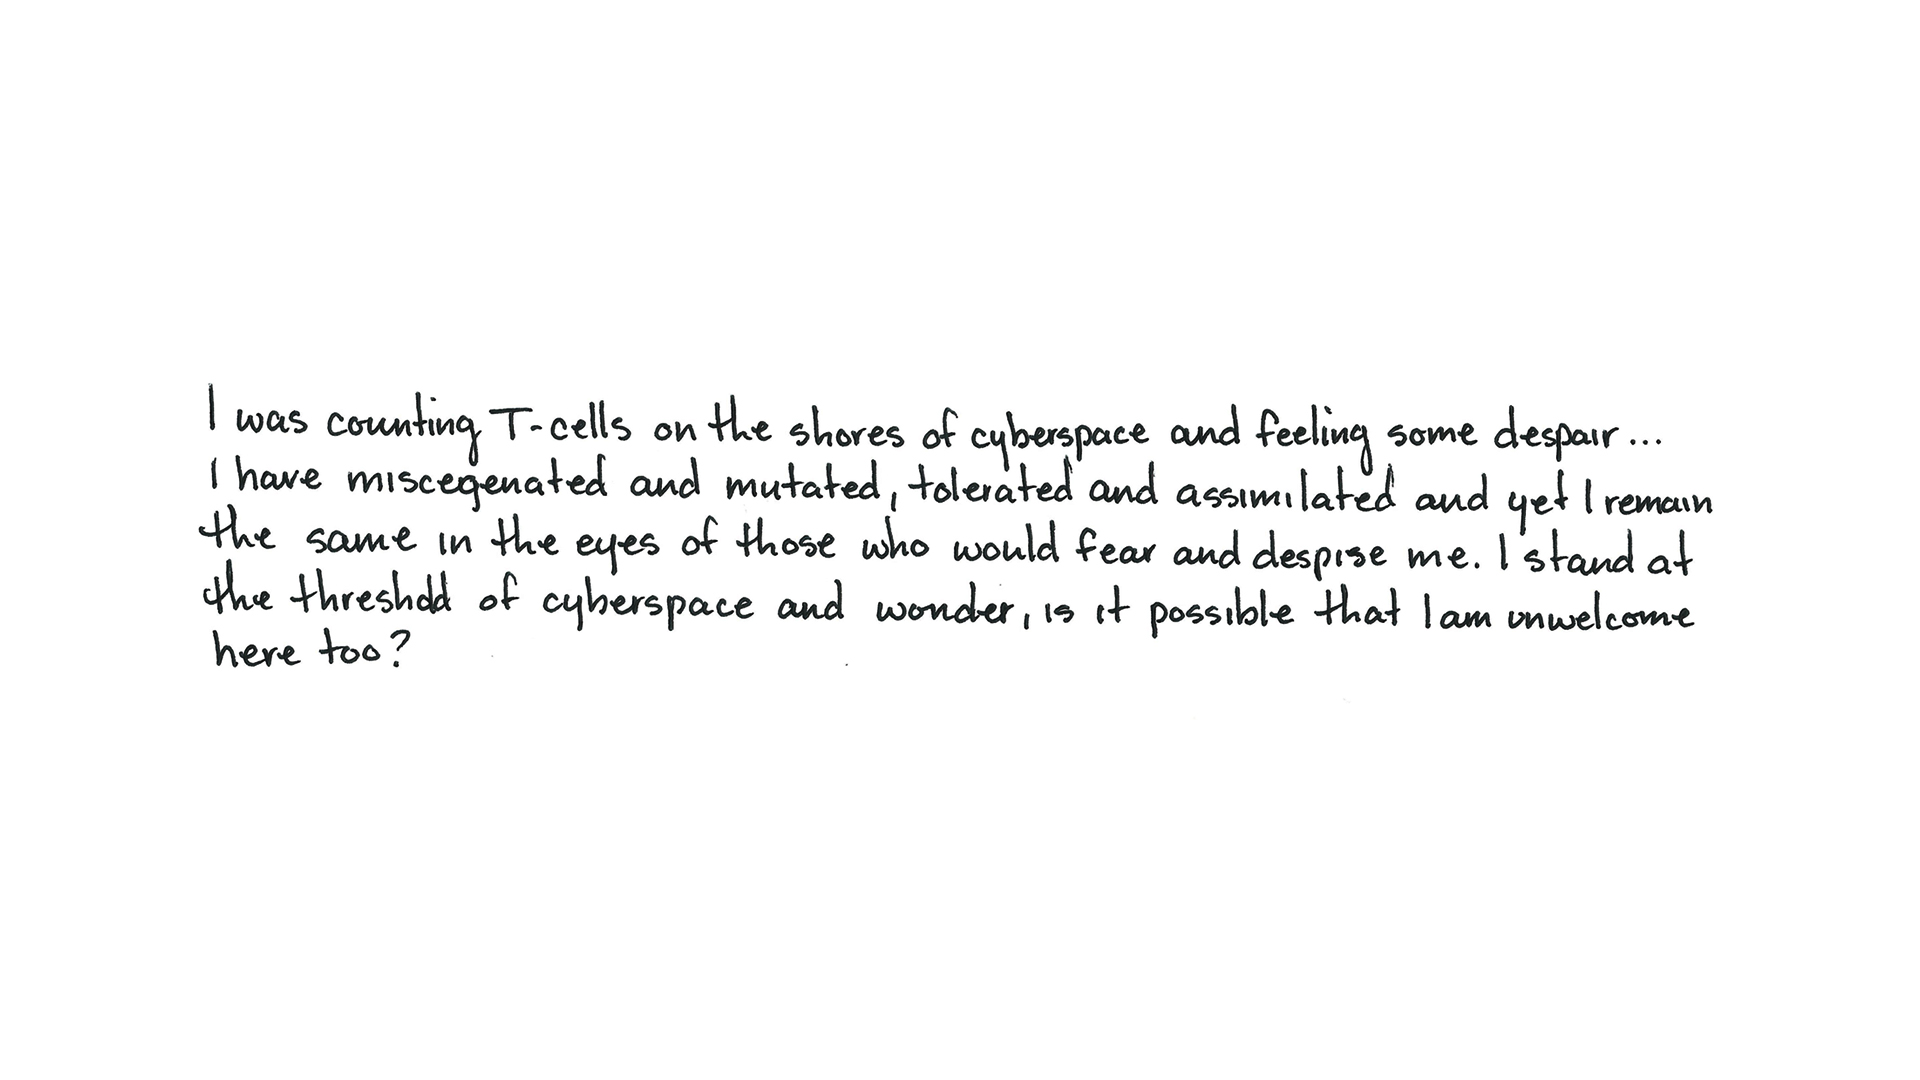 I was counting T-cells on the shores of cyberspace and feeling some despair...
I have miscegenated and mutated, tolerated and assimilated and yet I remain
the same in the eyes of those who would fear and despise me. I stand at
the threshold of cyberspace and wonder, is it possible that I am unwelcome
here too?